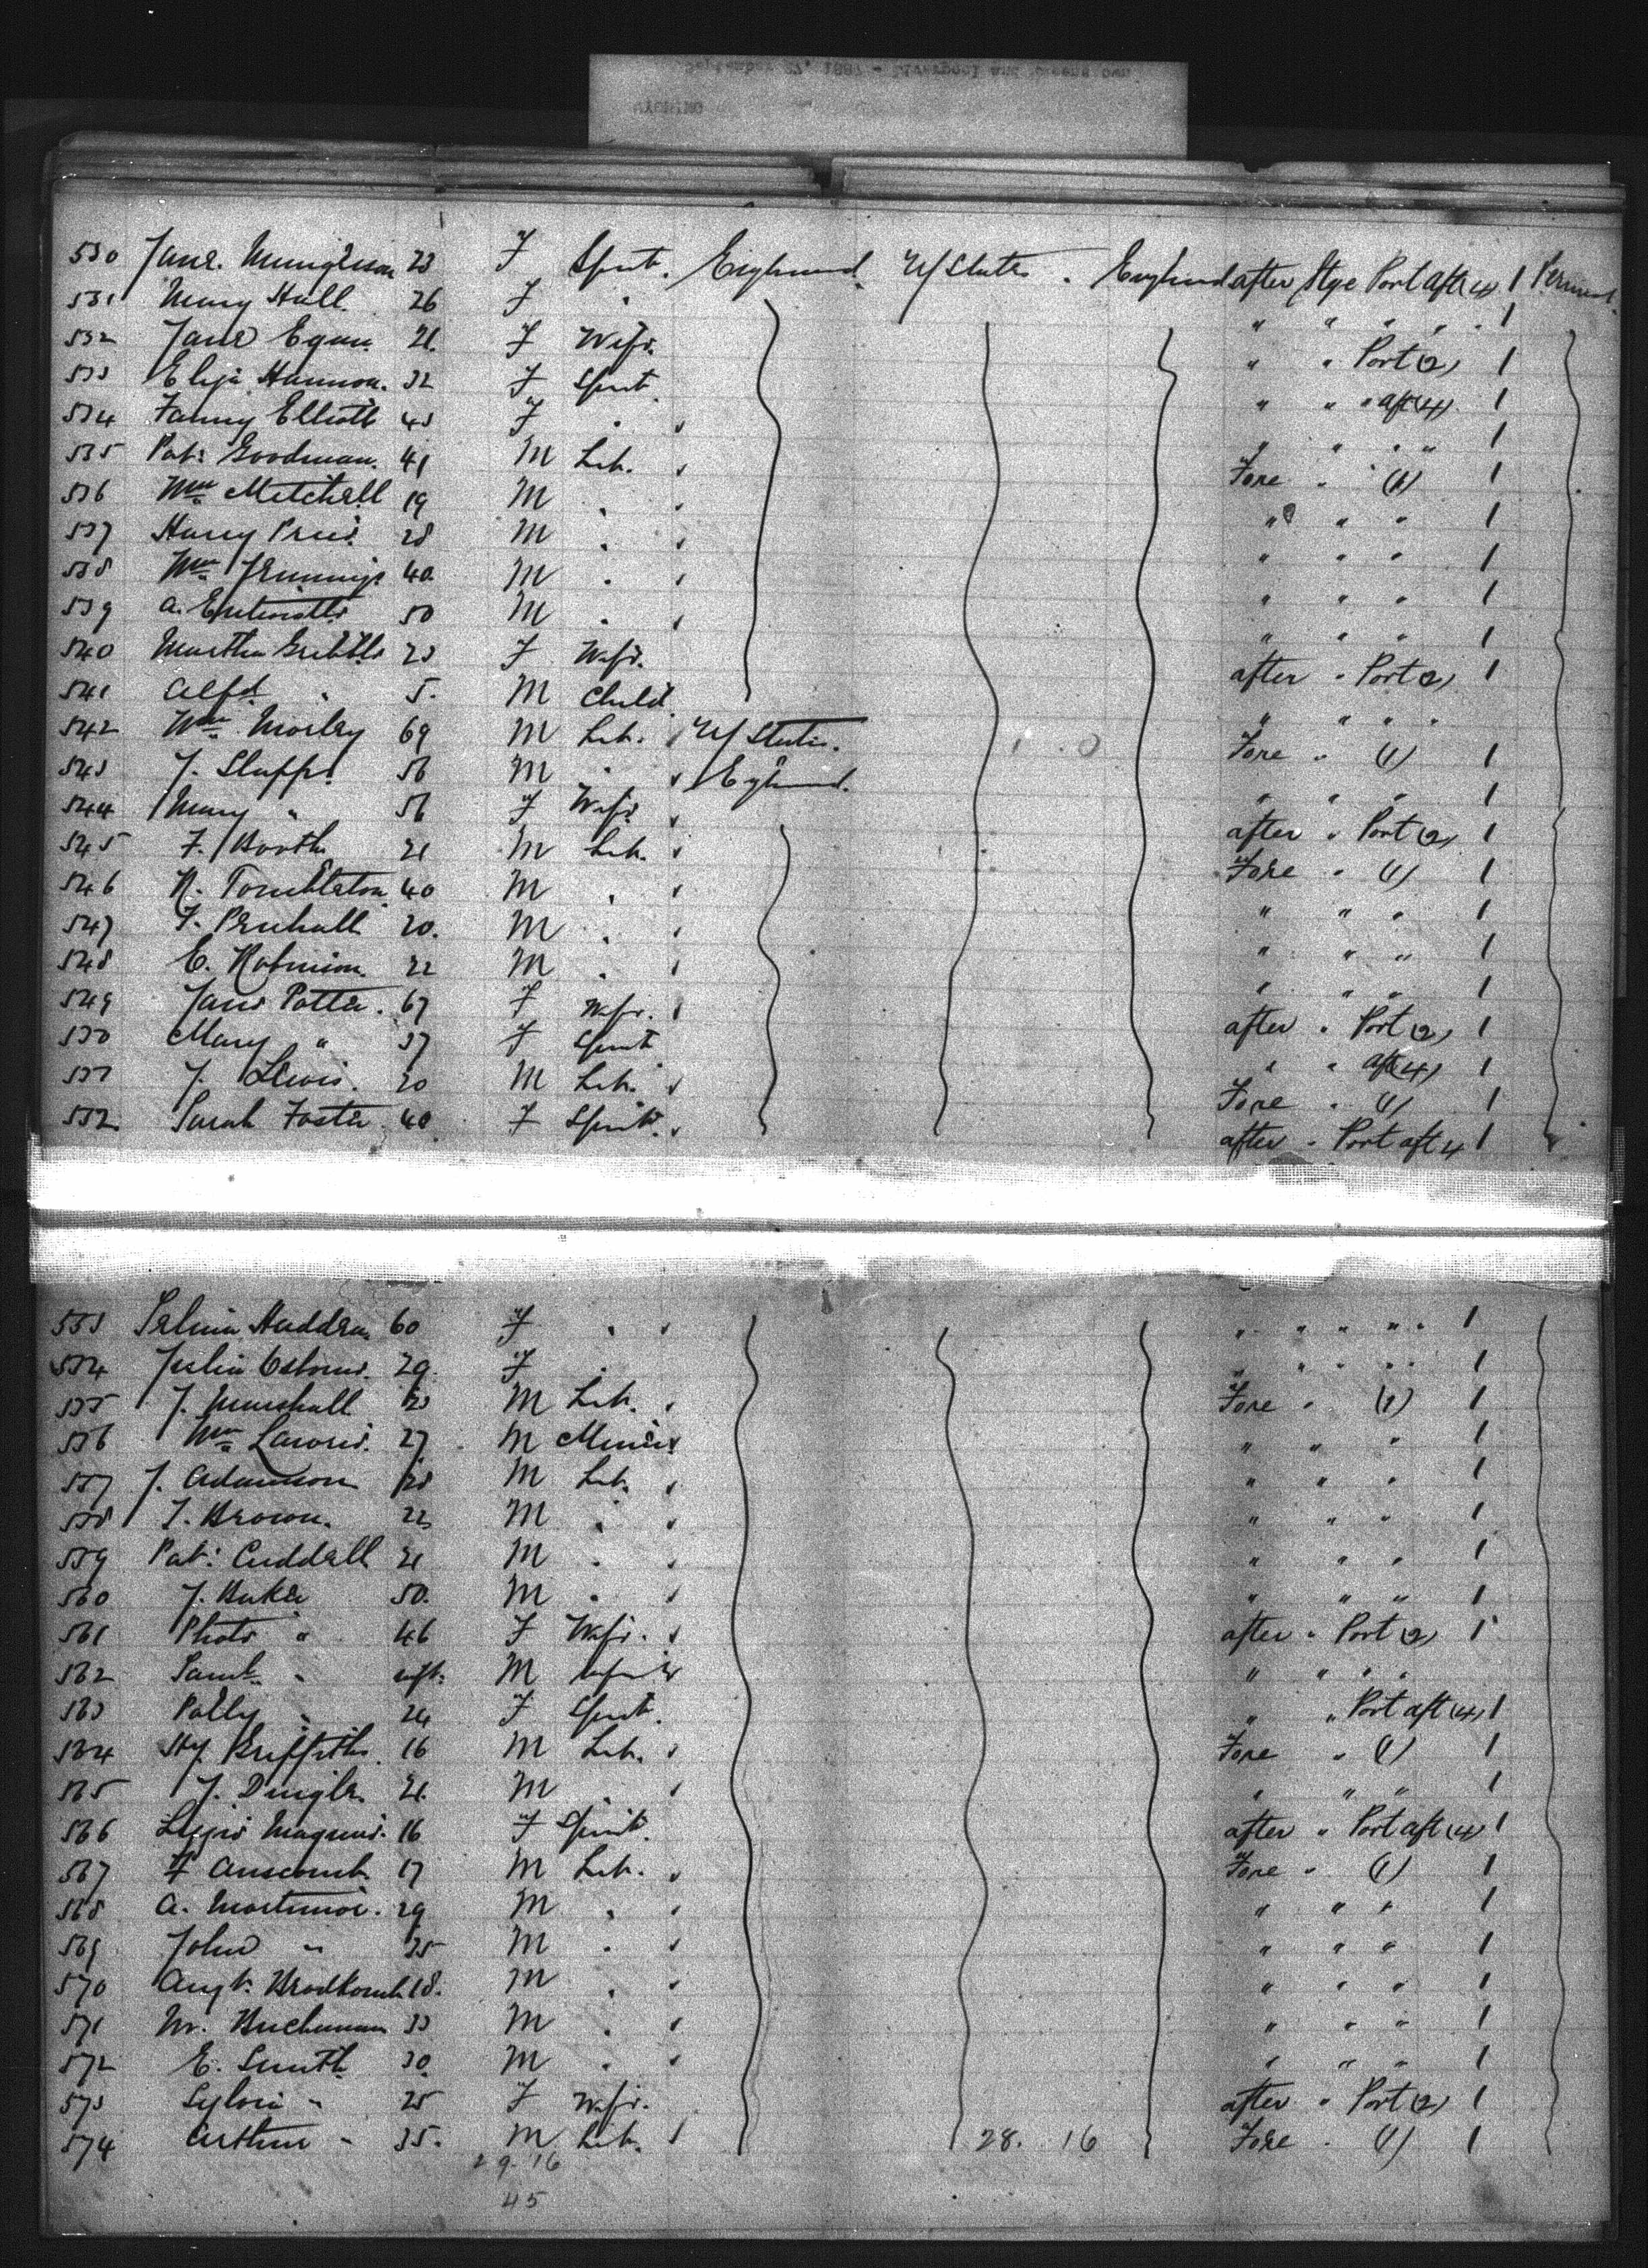 530 Jane 23 F Spnt. England U/States . England after Stge Port aft (4) 1
531 Mary Hall 26 F " " " " " 1
532 Jane Egan 21. F Wife " " Port (2) 1
533 Eliza Hannon. 32 F Spnt " " " aft (4) 1
534 Fanny Elliott 43 F " " " " " 1
535 Pat: Goodman. 41 M Lab. Fore " (1) 1
536 Wm Mitchell 19 M " " " " 1
537 Harry Price 28 M " " " " 1
538 Wm Jennings 40 M " " " " 1
539 A. Entwistle 50 M " " " " 1
540 Martha Gribble 23 F Wife. after " Port (2) 1
541 Alfd. " 5. M Child " " " "
542 Wm Morley 69 M Lab. U/States. Fore " (1) 1
543 J. 56 M " England. " " " 1
544 Mary " 56 F Wife after " Port (2) 1
545 F. Booth 21 M Lab. Fore " (1) 1
546 40 M " " " " 1
547 20. M " " " " 1
548 E. Robinson. 22 M " " " " 1
549 Jane Potter. 67 F Wife. after " Port (2) 1
550 Mary " 37 F Spnt " " aft (4) 1
551 J. Lewis. 20 M Lab. Fore " (1) 1
552 Sarah Foster. 40 F Spnt. after " Port aft 4 1
553 60 F " " " " " " 1
554 Julia Osborne. 29. F " " " " " 1
555 J. Marshall 23 M Lab. Fore " (1) 1
556 Wm 27 M Miner " " " 1
557 J. Adamson 28 M Lab. " " " 1
558 J. Brown. 22 M " " " " 1
559 Pat: Cuddell 21 M " " " " 1
560 J. Baker 50. M " " " " 1
561 " 46 F Wife. after " Port (2) 1
562 Saml. " inft. M Infant " " " "
563 Polly " 24 F Spnt. " " Port aft (4) 1
564 Hy. Griffiths 16 M Lab. Fore " (1) 1
565 J. Dingle. 21. M " " " " 1
566 Lizzie Magnus. 16 F Spnt. after " Port aft (4) 1
567 F Anscomb 17 M Lab. Fore " (1) 1
568 A. Mortimer. 29 M " " " " 1
569 John " 25 M " " " " 1
570 Augt. 18. M " " " " 1
571 Buchanan 33 M " " " " 1
572 E. Smith 30. M " " " " 1
573 Sylvia " 25 F Wife. after " Port (2) 1
574 Arthur " 35. M Lab. 28. 16 Fore " (1) 1
29. 16
45